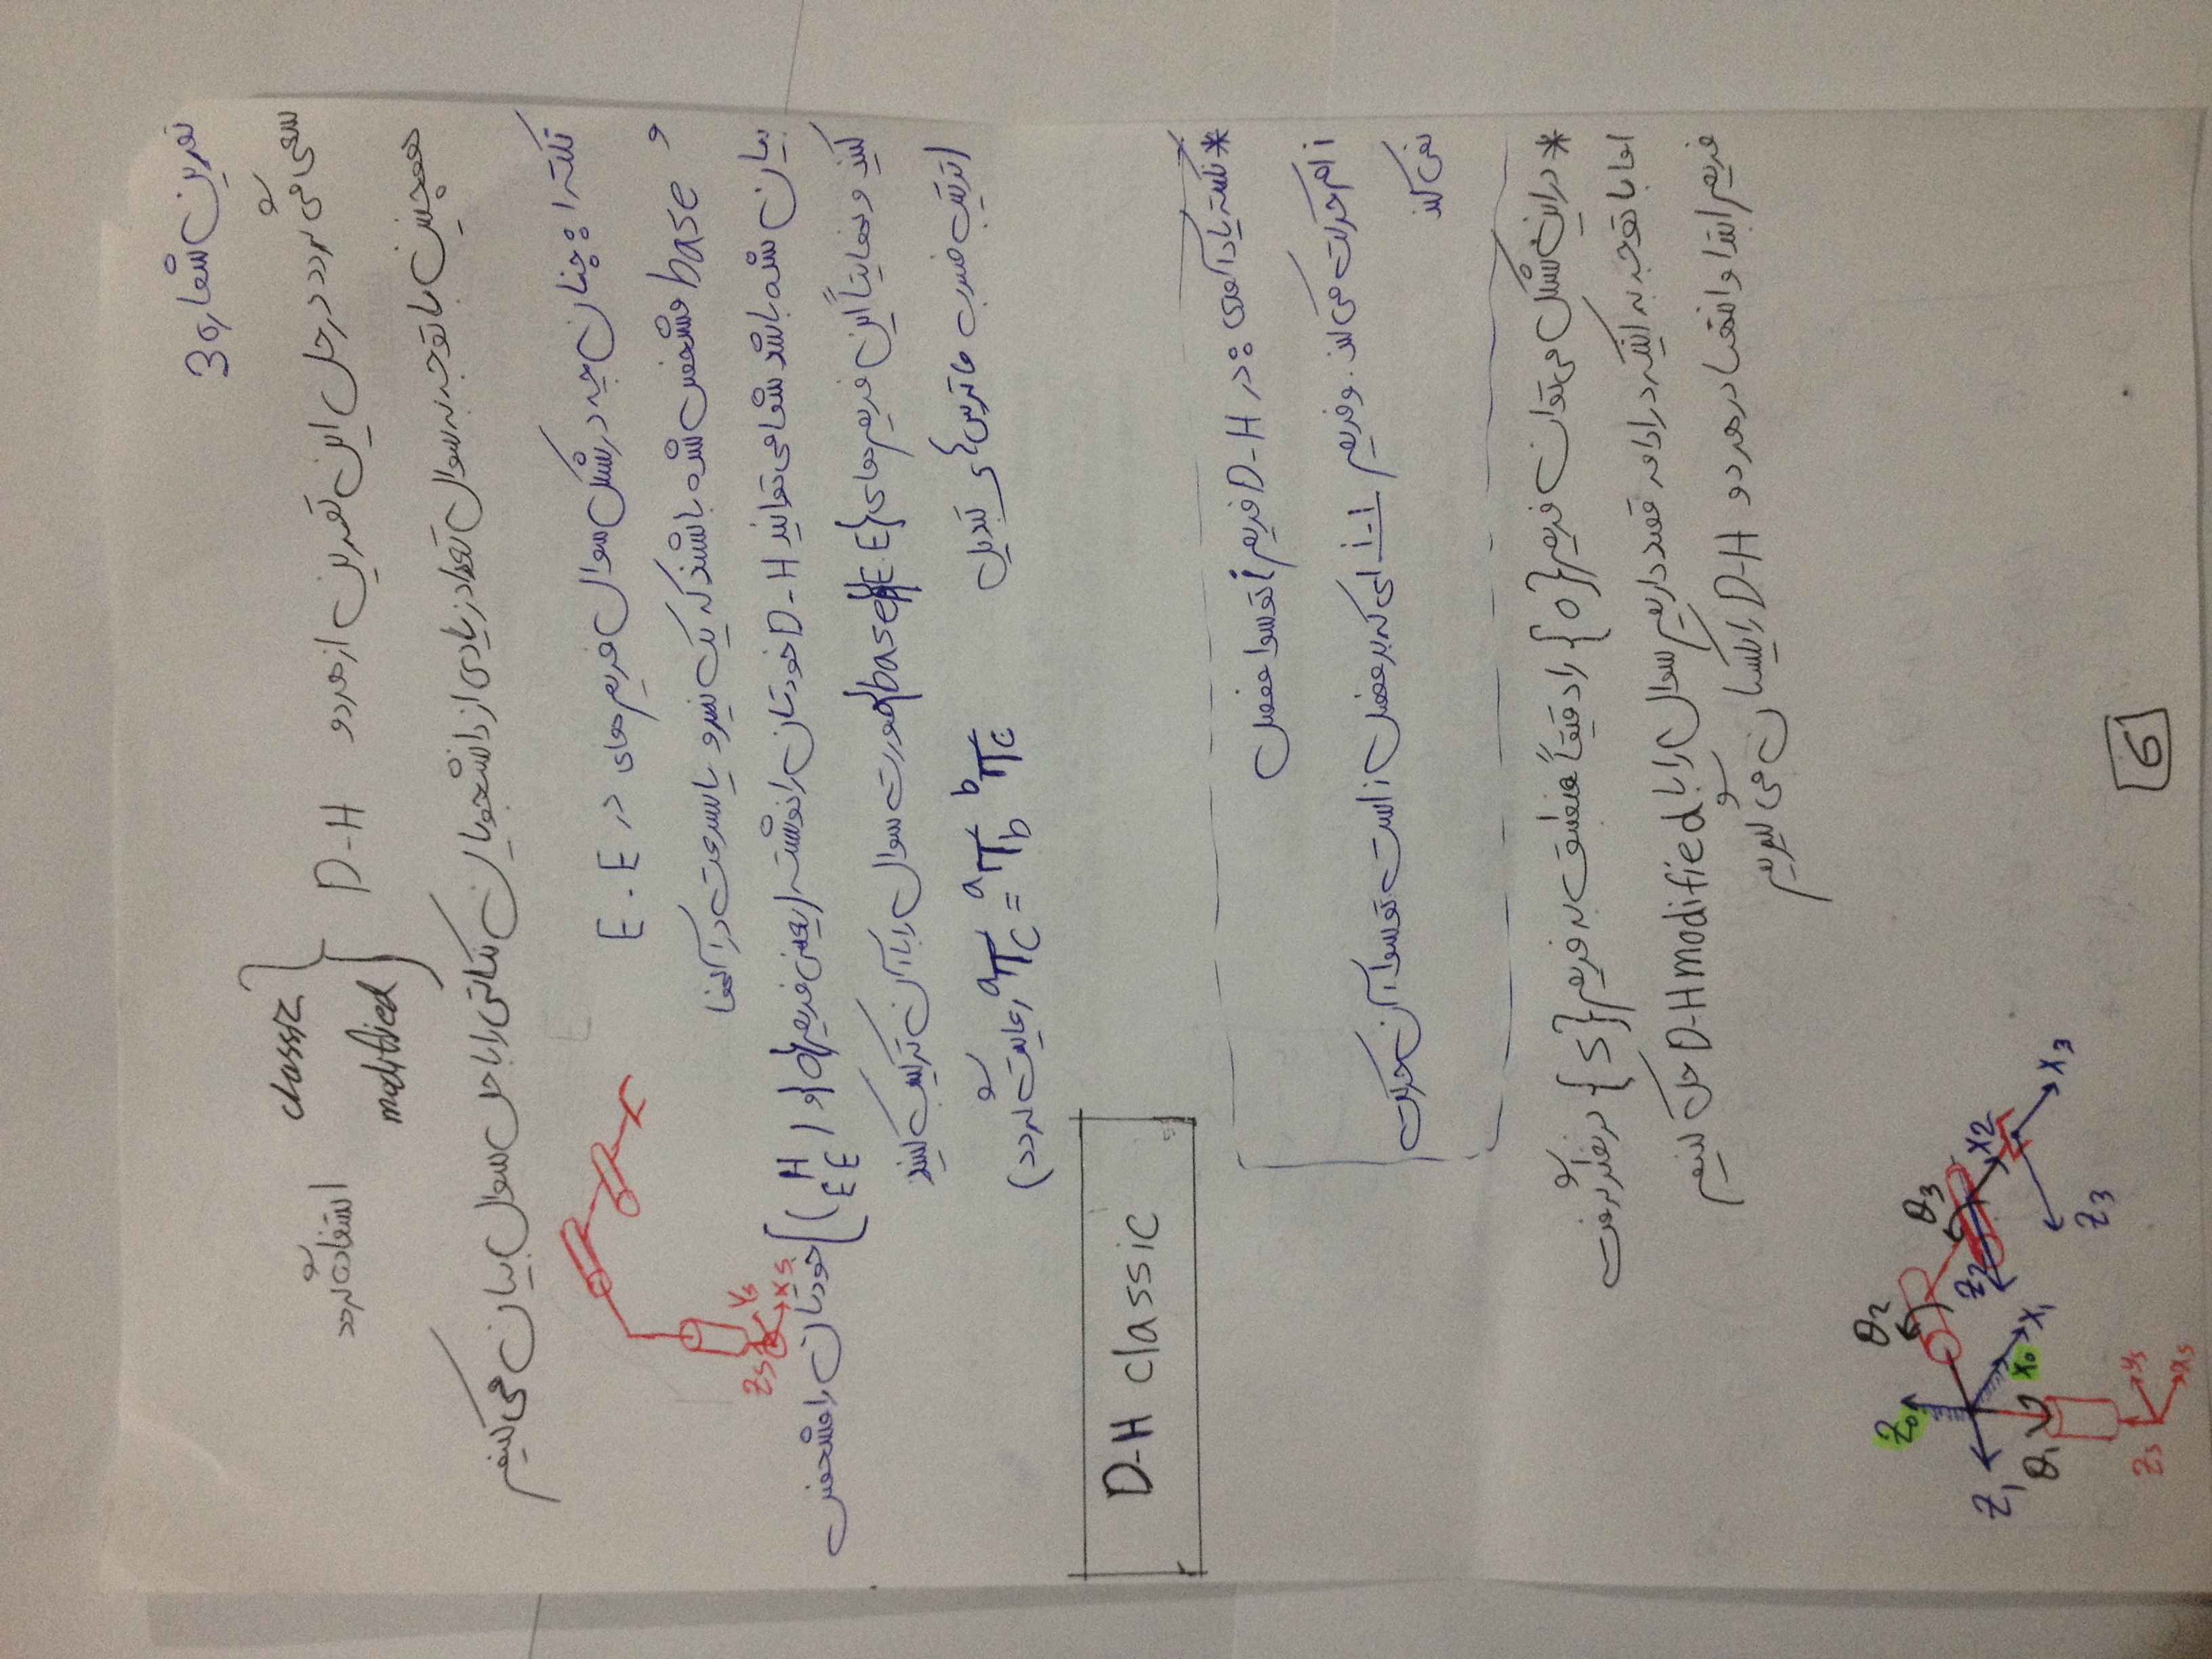 تمرین شماره 3
سعی می گردد در حل این تمرین از هر دو D-H { classic modified استفاده گردد
همچنین با توجه به سوال تعداد زیادی از دانشجویان نکاتی را با حل سوال بیان می کنیم
نکته ۱: چنان چه در شکل سوال فریم های در E.E
و base مشخص شده باشند که یک نیرو یا سرعت در آنها
بیان شده باشد شما می توانید D-H خودتان را نوشته (یعنی فریم {0} و {H EE} خودتان را مشخص
کنید و نهایتاً این فریم های {E.E} {base} صورت سوال را با آن ترکیب کنید
(ترتیب ضرب ماتریس های تبدیل aTc = aTb bTc رعایت گردد)
Zs Ys Xs
D-H classic
* نکته یادآوری: در D-H فریم i توسط مفصل
i ام حرکت می کند. و فریم i-1 ای که بر مفصل i است توسط آن حرکت
نمی کند
* در این شکل می توان فریم {0} را دقیقاً منطبق به فریم {S} در نظر گرفت
اما با توجه به اینکه در ادامه قصد داریم سوال را با D-H modified حل کنیم
فریم ابتدا و انتها در هر دو D-H را یکسان می گیریم
θ2
Z0 θ3
Z1 Z2 X2
θ1 X0 X1 X3
Z3
Zs Ys Xs
6